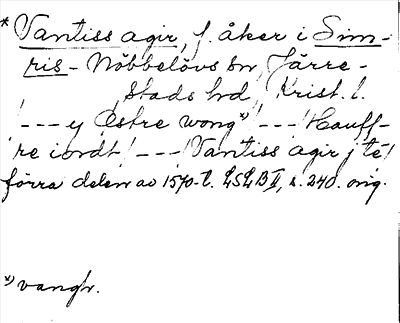 * Vantiss agir, f. åker i Sim-
ris- Nöbbelövs sn, Järre-
stads hd, Krist. l.
!---y Østre wong*)!---!Hauff-
re iordt!---!Vantiss agir j té!
förra delen av 1570-t. LSLB II, s. 240. orig.
*) vangh.